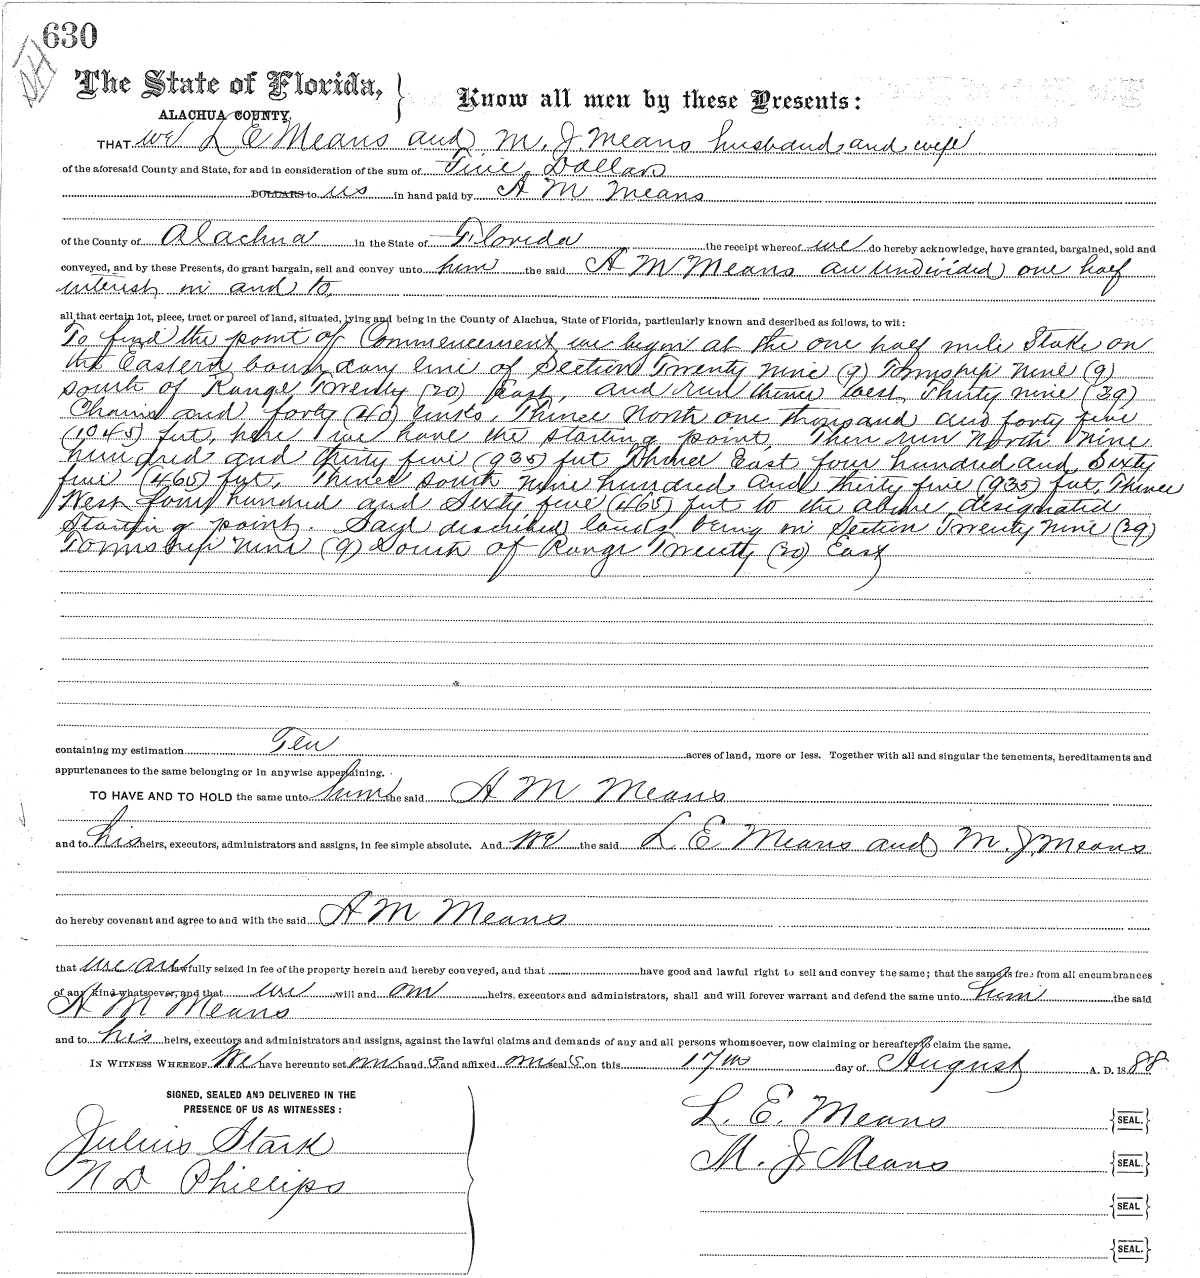 630
The State of Florida, } Know all men by these Presents:
ALACHUA COUNTY.
THAT we L E Means and M. J. Means husband and wife
of the aforesaid County and State, for and in consideration of the sum of Five Dollars
DOLLARS to us in hand paid by A M Means
of the County of Alachua in the State of Florida the receipt whereof we do hereby acknowledge, have granted, bargained, sold and
conveyed, and by these Presents, do grant bargain, sell and convey unto him the said A M Means an undivided one half
interest in and to
all that certain lot, piece, tract or parcel of land, situated, lying and being in the County of Alachua, State of Florida, particularly known and described as follows, to wit:
To find the point of Commencement we begin at the one half mile Stake on
the Eastern boundary line of Section Twenty nine (9) Township Nine (9)
south of Range Twenty (20) East, and run thence west Thirty nine (39)
Chains and forty (40) links, Thence North one thousand and forty five
(1045) feet, here we have the starting point, Then run North nine
hundred and thirty five (935) feet Thence East four hundred and Sixty
five (465) feet, Thence South nine hundred and thirty five (935) feet, Thence
West four hundred and Sixty five (465) feet to the above designated
starting point. Said described lands being in Section Twenty nine (29)
Township nine (9) South of Range Twenty (20) East
containing my estimation Ten acres of land, more or less. Together with all and singular the tenements, hereditaments and
appurtenances to the same belonging or in anywise appertaining.
TO HAVE AND TO HOLD the same unto him the said A M Means
and to his heirs, executors, administrators and assigns, in fee simple absolute. And we the said L. E Means and M. J. Means
do hereby covenant and agree to and with the said A M Means
that we are lawfully seized in fee of the property herein and hereby conveyed, and that have good and lawful right to sell and convey the same; that the same is free from all encumbrances
of any kind whatsoever, and that we will and our heirs, executors and administrators, shall and will forever warrant and defend the same unto him the said
A M Means
and to his heirs, executors and administrators and assigns, against the lawful claims and demands of any and all persons whomsoever, now claiming or hereafter to claim the same.
IN WITNESS WHEREOF, We have hereunto set our hand s and affixed our seal s on this 17th day of August A. D. 18 88
SIGNED, SEALED AND DELIVERED IN THE
PRESENCE OF US AS WITNESSES:
L. E. Means {SEAL.}
Julius Stark
M. J. Means {SEAL.}
N D Phillips
{SEAL.}
{SEAL.}